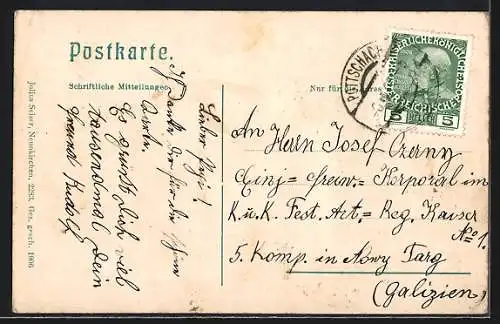 Postkarte.
Schriftliche Mitteilungen
Nur für die Adresse
Julius Seiser, Neunkirchen, 2283, Ges. gesch. 1906
PÖTTSCHACH
KAISERLICHE KÖNIGLICHE
ÖSTERREICHISCHE
5 5
Lieber Pepi!
Danke Dir für die
Karte.
Es grüsst Dich viel
tausendmal Dein
Freund Rudolf
An Herrn Josef Czerny
Einj= freiw.= Korporal im
K. u. K. Fest. Art.= Reg. Kaiser
No 1.
5. Komp. in Nowy Targ
(Galizien)